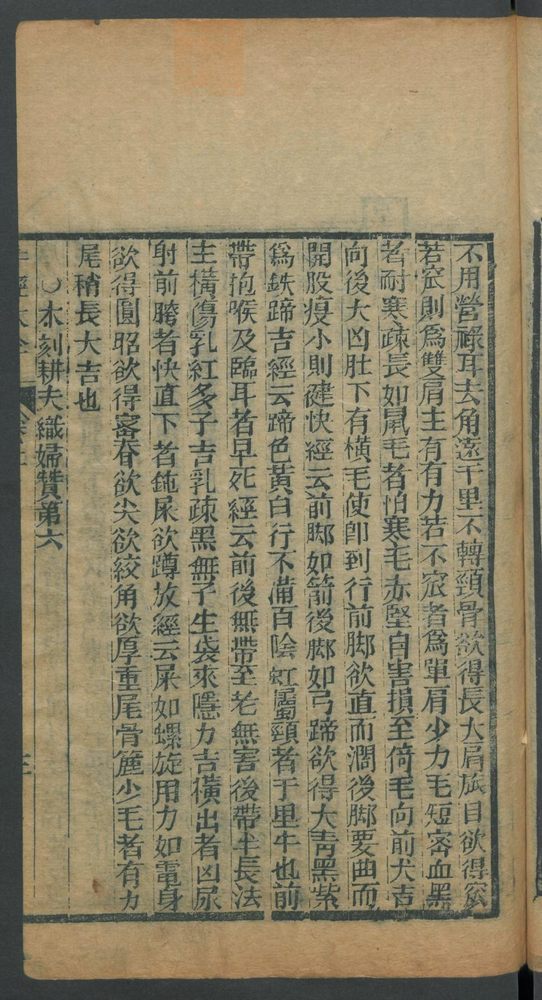 不用營祿耳去角遠千里不轉頸骨欲得長大肩旅目欲得窊
若窊則爲雙肩主有有力若不窊者爲單肩少力毛短密血黑
者耐寒疎長如鼠毛者怕寒毛赤堅自害損至倚毛向前犬吉
向後大凶肚下有橫毛使卽到行前脚欲直而濶後脚要曲而
開股瘦小則健快經云前脚如箭後脚如弓蹄欲得大靑黑紫
爲鉄蹄吉經云蹄色黃白行不備百陰虹屬頸者千里牛也前
帶抱喉及臨耳者早死經云前後無帶至老無害後帶半長法
主橫傷乳紅多子吉乳疎黑無子生袋來隱方吉橫出者凶尿
射前胯者快直下者鈍尿欲蹲放經云屎如螺旋用力如電身
欲得圓昭欲得密春欲尖欲絞角欲厚重尾骨麄少毛者有力
尾稍長大吉也
○木刻耕夫織婦贊第六
牛經大全